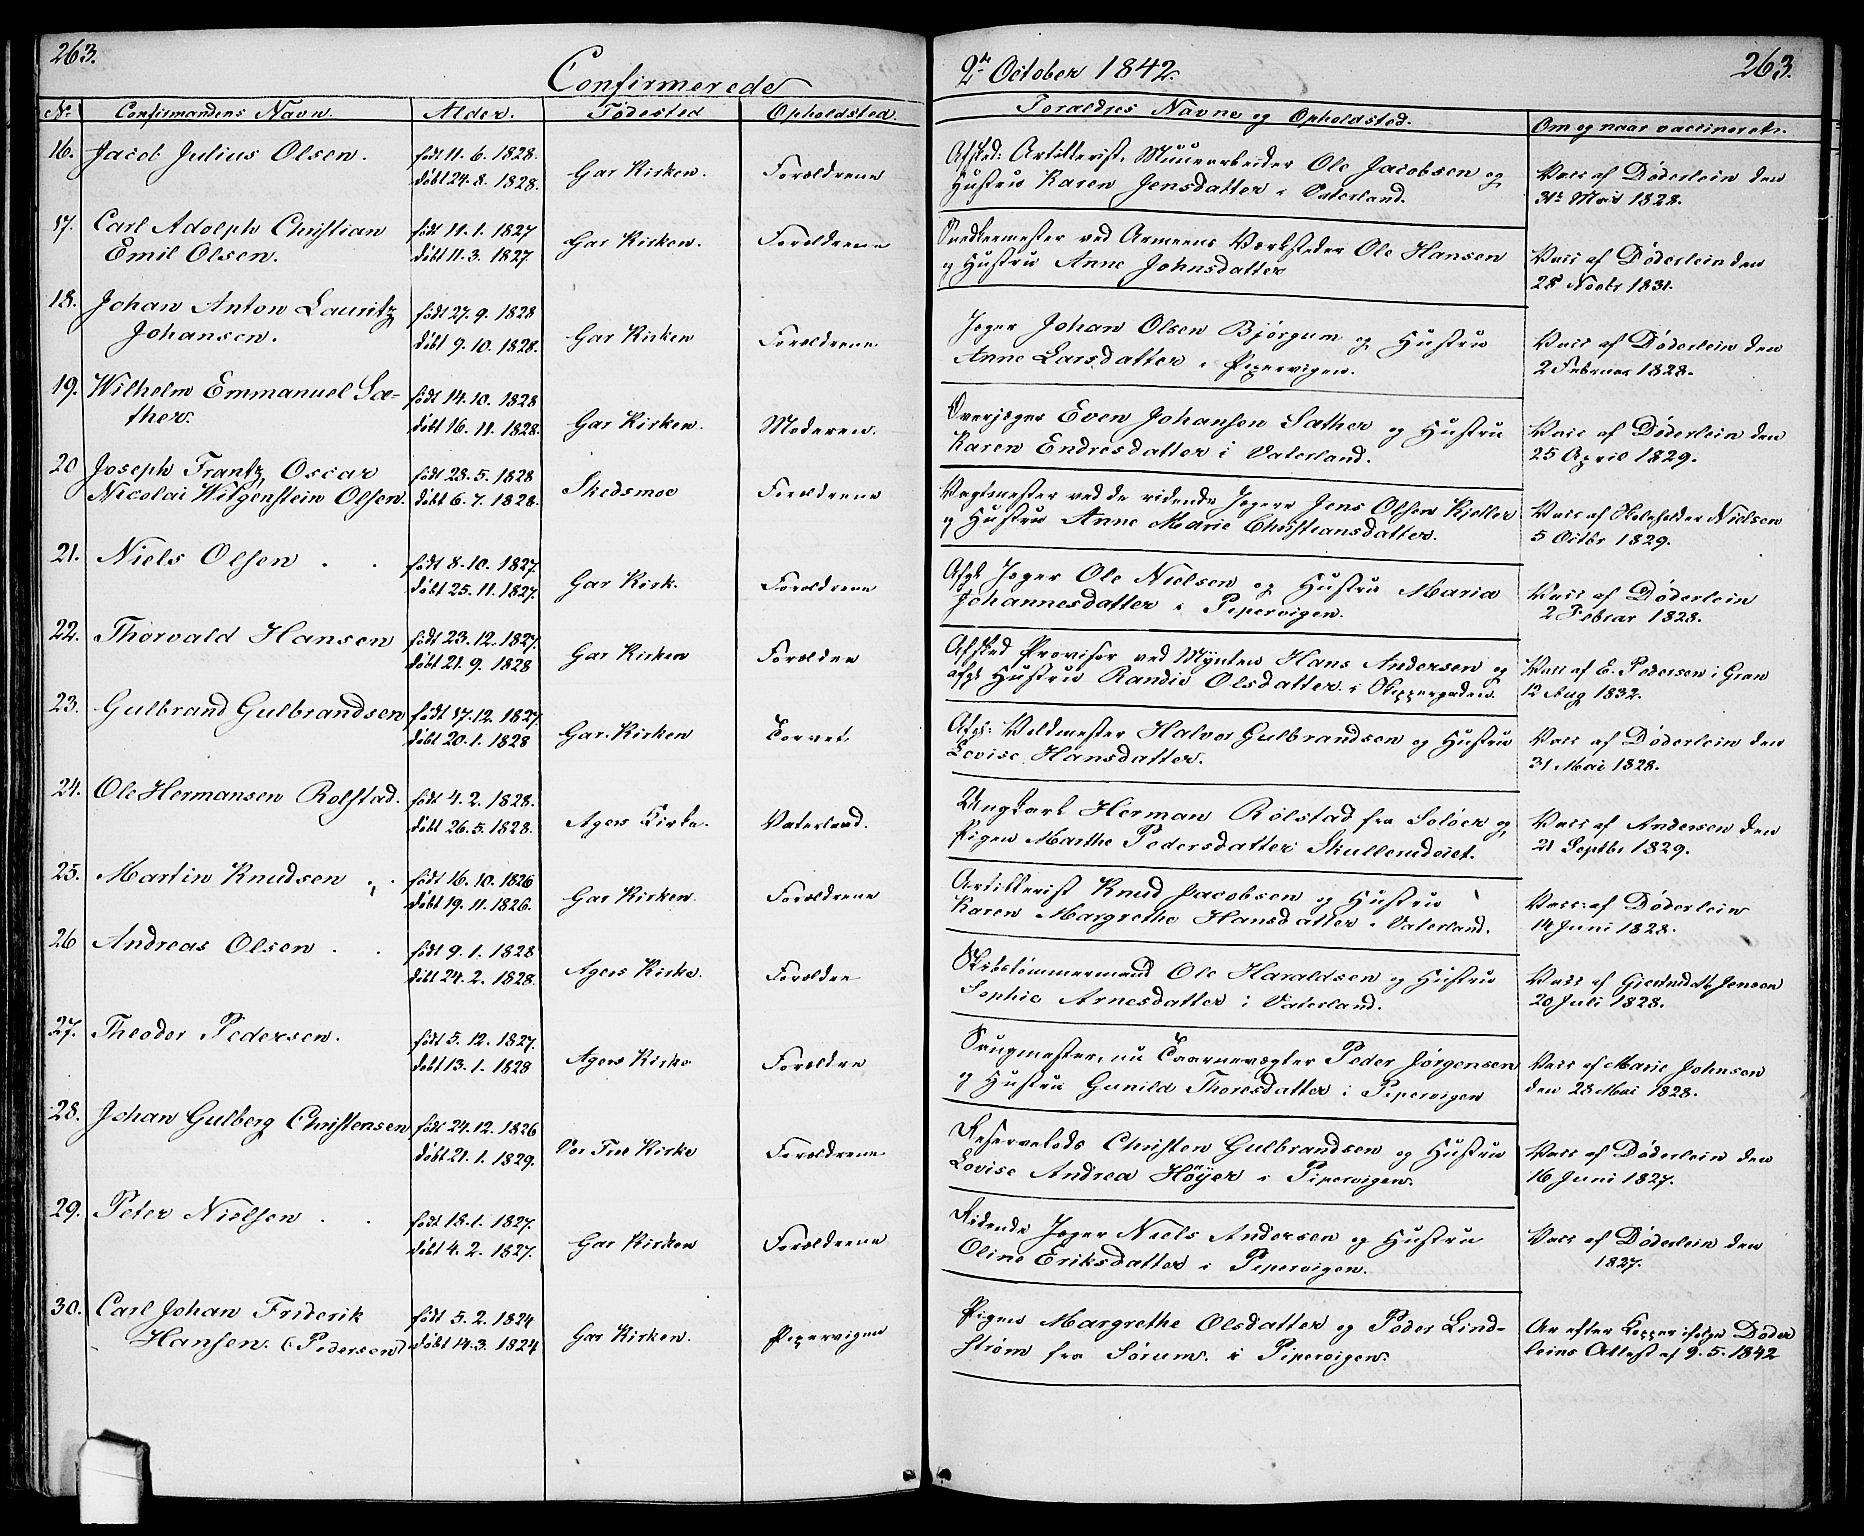 263.
Confirmerede
2den October 1842.
263.
No. Confirmandens Navn. Alder. Fødested Opholdsted. Foraldres Navne og Opholdsted. Om og naar vaccineret.
16. Jacob Julius Olsen. født 11. 6. 1828. døbt 24. 8. 1828. Gar Kirken. Forældrene
Afsked: Artillerist, Muurarbeider Ole Jacobsen og
Hustru Karen Jensdatter i Vaterland.
Vacc af Døderlein den
31te Mai 1828.
17. Carl Adolph Christian
Emil Olsen.
født 11. 1. 1827
døbt 11. 3. 1827.
Gar Kirken. Forældrene
Snedkermester ved Armeens Værksteder Ole Hansen
og Hustru Anne Johnsdatter
Vacc af Døderlein den
28 Novbr 1831.
18. Johan Anton Lauritz
Johansen.
født 27. 9. 1828
døbt 9. 10. 1828.
Gar Kirken Forældrene
Jæger Johan Olsen Bjørgum og Hustru
Anne Larsdatter i Pipervigen.
Vacc af Døderlein den
2 Februar 1828.
19. Wilhelm Emmanuel Sæ-
ther.
født 14. 10. 1828
døbt 16. 11. 1828.
Gar Kirken. Moderen.
Overjæger Even Johansen Sæther og Hustru
Karen Endresdatter i Vaterland.
Vacc af Døderlein den
25 April 1829.
20 Joseph Frantz Oscar
Nicolai Witgenstein Olsen.
født 28. 5. 1828
døbt 6. 7. 1828.
Skedsmoe Forældrene
Vagtmester ved de ridende Jægere Jens Olsen Kjeller
og Hustru Anne Marie Christiansdatter.
Vacc af Nielsen
5 Octbr 1829.
21. Niels Olsen
født 8. 10. 1827.
døbt 25. 11. 1827.
Gar Kirk. Forældrene
Afgk Jæger Ole Nielsen og Hustru Maria
Johannesdatter i Pipervigen.
Vacc af Døderlein
2 Februar 1828.
22. Thorvald Hansen
født 23. 12. 1827.
døbt 21. 9. 1828
Gar Kirken Forældre
Afsked Provisor ved Mynten Hans Andersen og
afgk Hustru Randie Olsdatter i Skippergaden.
Vacc af E. Pedersen i Gran
12 Aug 1832.
23. Gulbrand Gulbrandsen
født 17. 12. 1827.
døbt 20. 1. 1828
Gar. Kirken Torvet
Afgk: Voldmester Halvor Gulbrandsen og Hustru
Lovise Hansdatter.
Vacc af Døderlein den
31 Mai 1828.
24. Ole Hermansen Rolstad.
født 4. 2. 1828.
døbt 26. 5. 1828.
Agers Kirke. Vaterland.
Ungkarl Herman Rolstad fra Soløer og
Pigen Marthe Pedersdatter Skullerudeiet.
Vacc af Andersen den
21 Septbr 1829.
25. Martin Knudsen
født 16. 10. 1826
døbt 19. 11. 1826.
Gar Kirken. Forældrene
Artillerist Knud Jacobsen og Hustru
Karen Margrethe Hansdatter i Vaterland.
Vacc: af Døderlein
14 Juni 1828.
26 Andreas Olsen
født 9. 1. 1828
døbt 24. 2. 1828.
Agers Kirke. Forældre
Skibstømmermand Ole Haraldsen og Hustru
Sophie Arnesdatter i Vaterland.
Vacc af Jensen
20 Juli 1828.
27. Theodor Pedersen.
født 5. 12. 1827.
døbt 13. 1. 1828
Agers Kirke Forældre
Saugmester, nu Taarnevægter Peder Jørgensen
og Hustru Gunild Thoresdatter i Pipervigen
Vacc af Marie Johnson
den 28 Mai 1828.
28. Johan Gulberg Christensen
født 24. 12. 1826
døbt 21. 1. 1829.
Vor Frel Kirke Forældrene
Reserveløds Christen Gulbrandsen og Hustru
Lovise Andrea Høÿer i Pipervigen.
Vacc af Døderlein den
16 Juni 1827.
29. Peter Nielsen
født 18. 1. 1827.
døbt 4. 2. 1827.
Gar Kirken Forældrene
Ridende Jæger Niels Andersen og Hustru
Oline Eriksdatter i Pipervigen.
Vacc af Døderlein den
1827.
30. Carl Johan Friderik
Hansen. (Pedersen)
født 5. 2. 1824
døbt 14. 3. 1824
Gar Kirken. Pipervigen
Pigen Margrethe Olsdatter og Peder Lind-
strøm fra Sørum. i Pipervigen.
Ar efter Kopper ifølge Døder
leins Attest af 9. 5. 1842